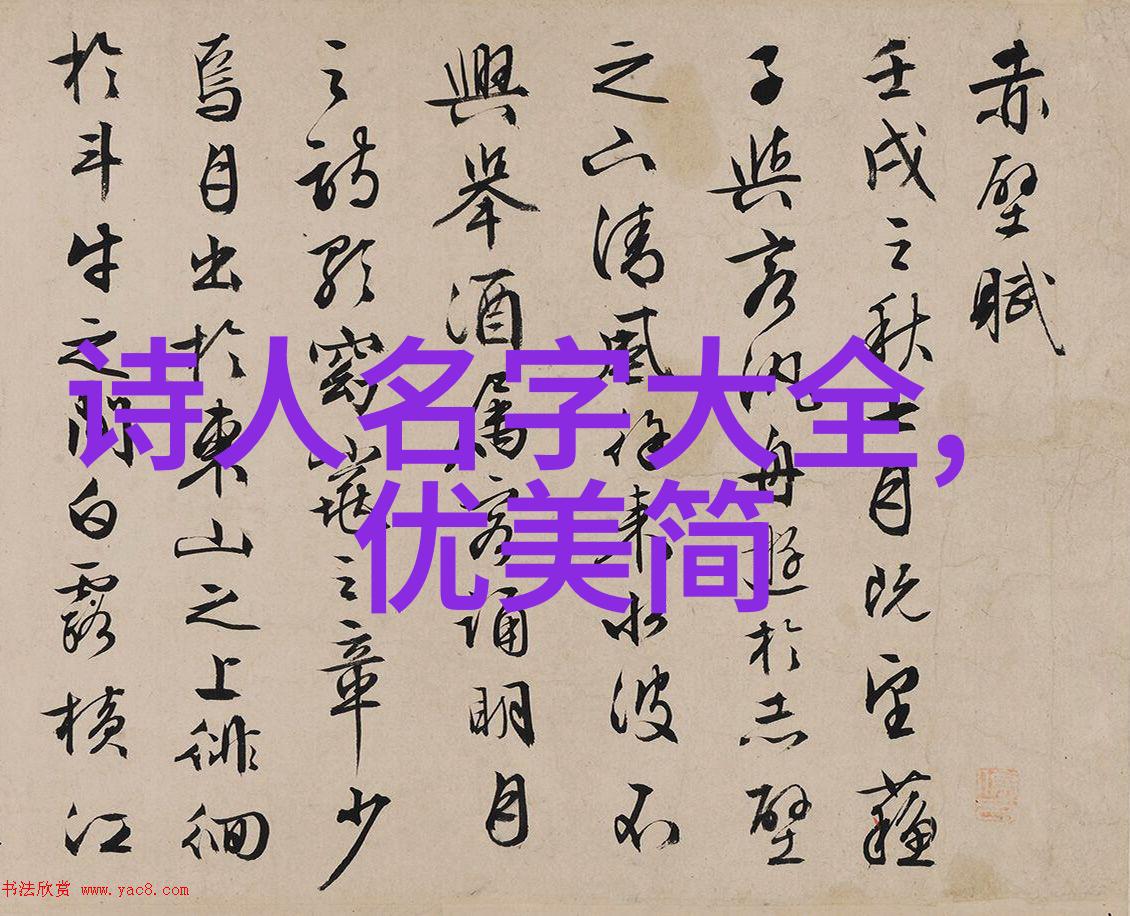 赤壁賦
壬戌之秋七月既望蘇
子與客泛舟遊於赤壁
之下清風徐來水波不
興舉酒屬客誦明月
之詩歌窈窕之章少
焉月出於東山之上徘徊
於斗牛之間白露橫江
诗人名字大全，
优美简
书法欣赏 www.yac8.com